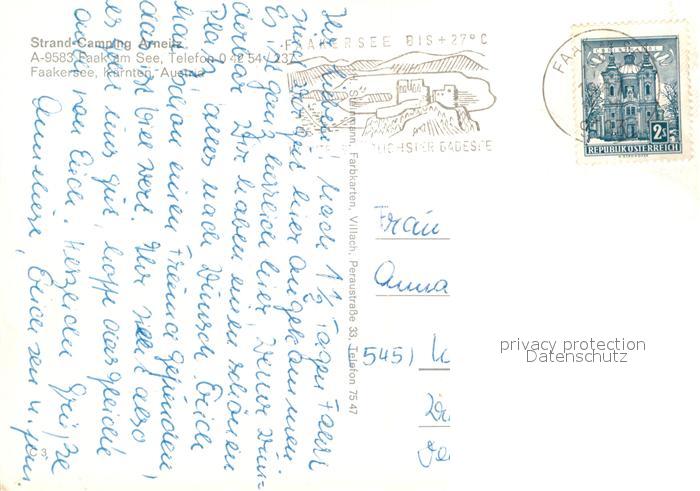 Strand-Camping Arneitz
A-9583 Faak am See, Telefon 0 42 54 / 237
Faakersee, Kärnten, Austria
FAAKERSEE BIS +27° C
BADESEE
FAA
CHRISTKINDL
2 S
REPUBLIK ÖSTERREICH
Farbkarten, Villach, Peraustraße 33, Telefon 75 47
Ihr Lieben! Nach 1 1/2 Tagen Fahrt
sind wir gut hier angekommen.
Es ist ganz herrlich hier, Wetter wun-
derbar. Wir haben einen schönen
Platz, alles nach Wunsch. Erich
hat schon einen Freund gefunden,
das ist viel wert. Ihr seht also
es geht uns gut, hoffe das gleiche
auch von Euch. Herzliche Grüße
Anneliese, Erich sen. u. jun.
Frau
Anna
5451
privacy protection
Datenschutz